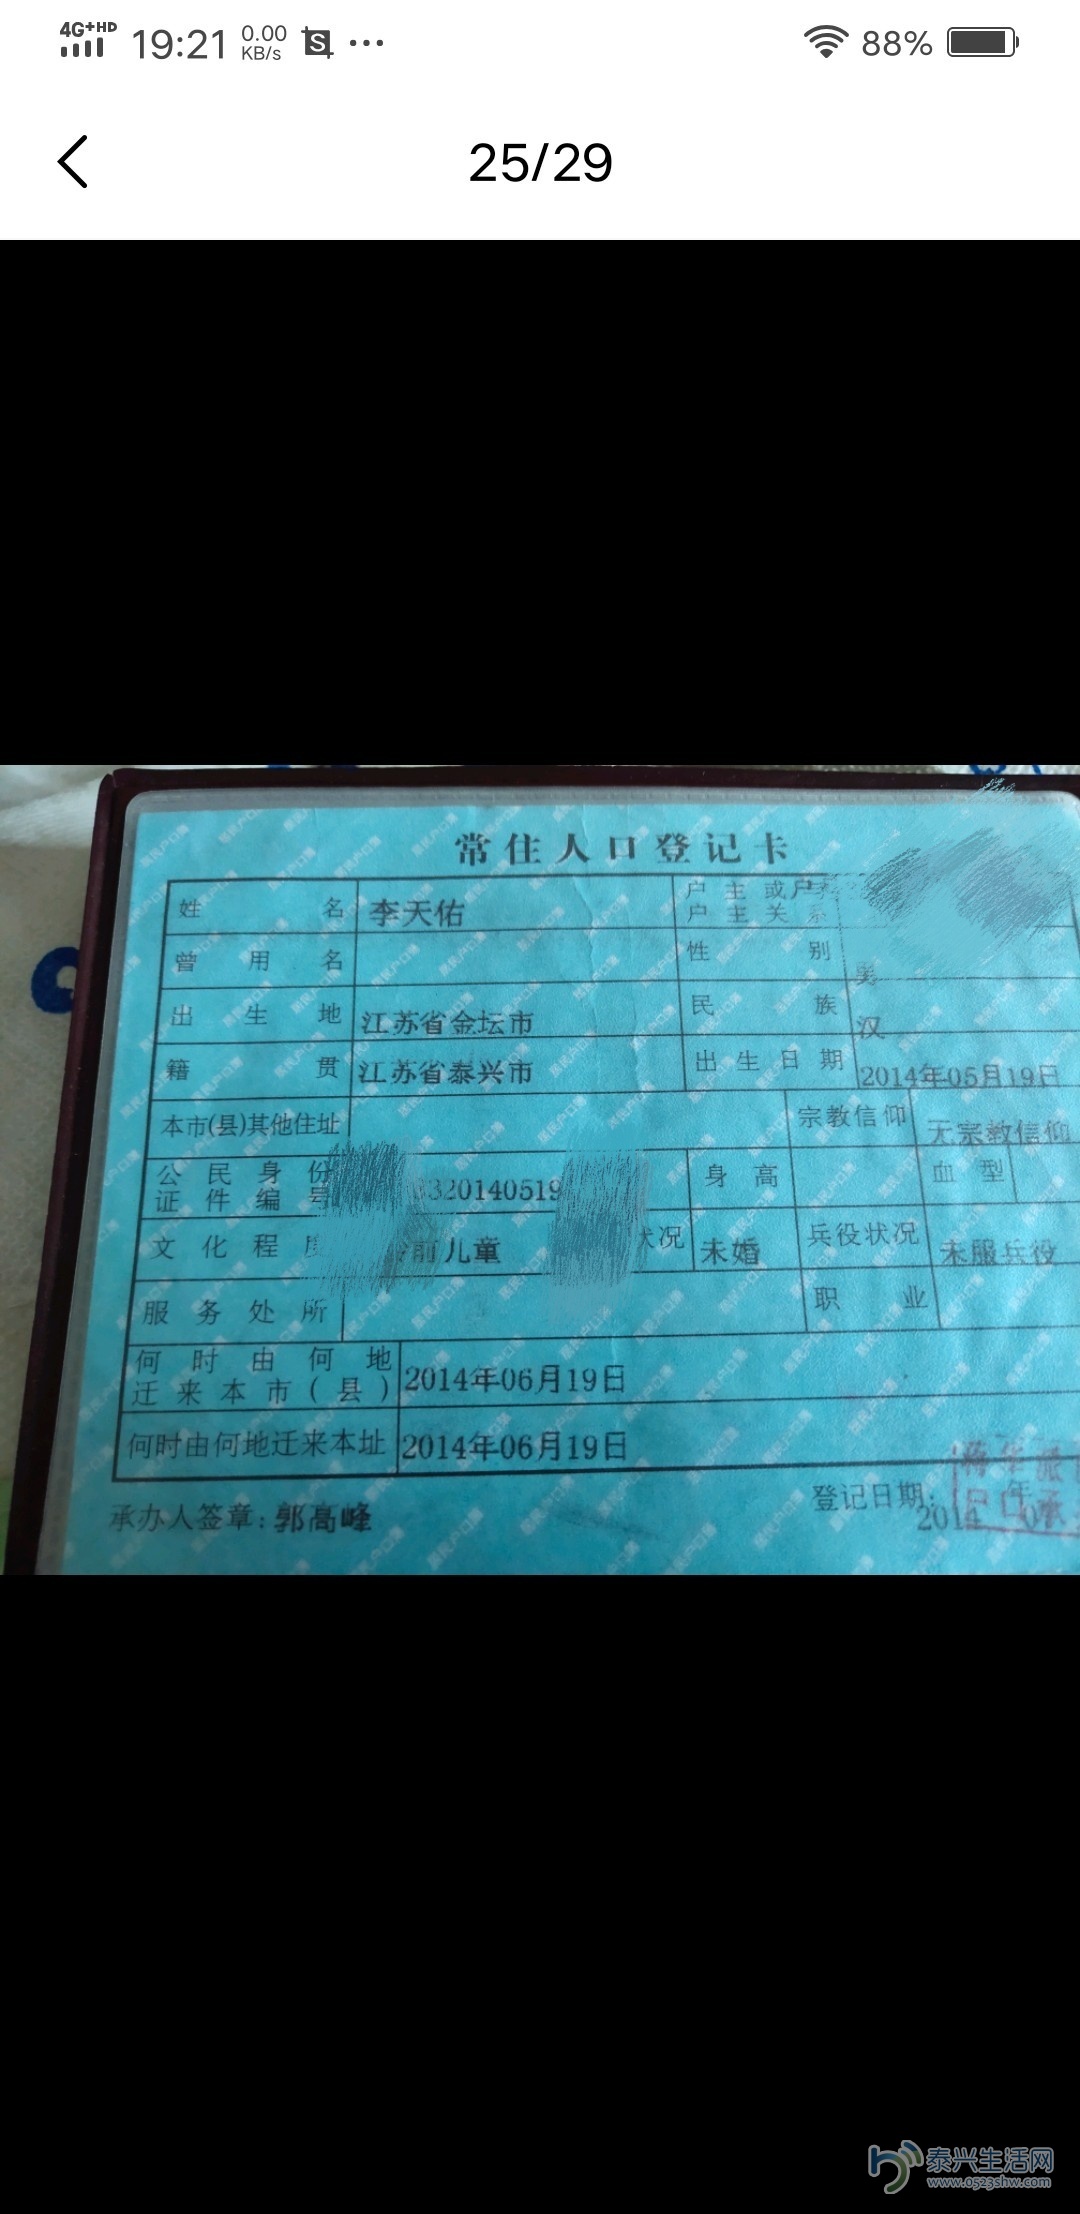 4G+HD 19:21 0.00 KB/s S ... 88%
25/29
常住人口登记卡
姓名 李天佑 户主或户
户主关系
曾用名 性别 男
出生地 江苏省金坛市 民族 汉
籍贯 江苏省泰兴市 出生日期 2014年05月19日
本市(县)其他住址 宗教信仰 无宗教信仰
公民身份
证件编号 320140519 身高 血型
文化程度 前儿童 状况 未婚 兵役状况 未服兵役
服务处所 职业
何时由何地
迁来本市(县) 2014年06月19日
何时由何地迁来本址 2014年06月19日
承办人签章:郭高峰 登记日期:
2014年
泰兴生活网
www.0523shw.com